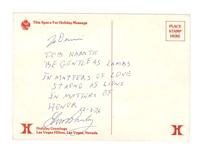 This Space For Holiday Message
PLACE
STAMP
HERE
To Dennis
BE GENTLE AS LAMBS
IN MATTERS OF LOVE
STRONG AS LIONS
IN MATTERS OF
HONOR
Holiday Greetings
Las Vegas Hilton, Las Vegas, Nevada